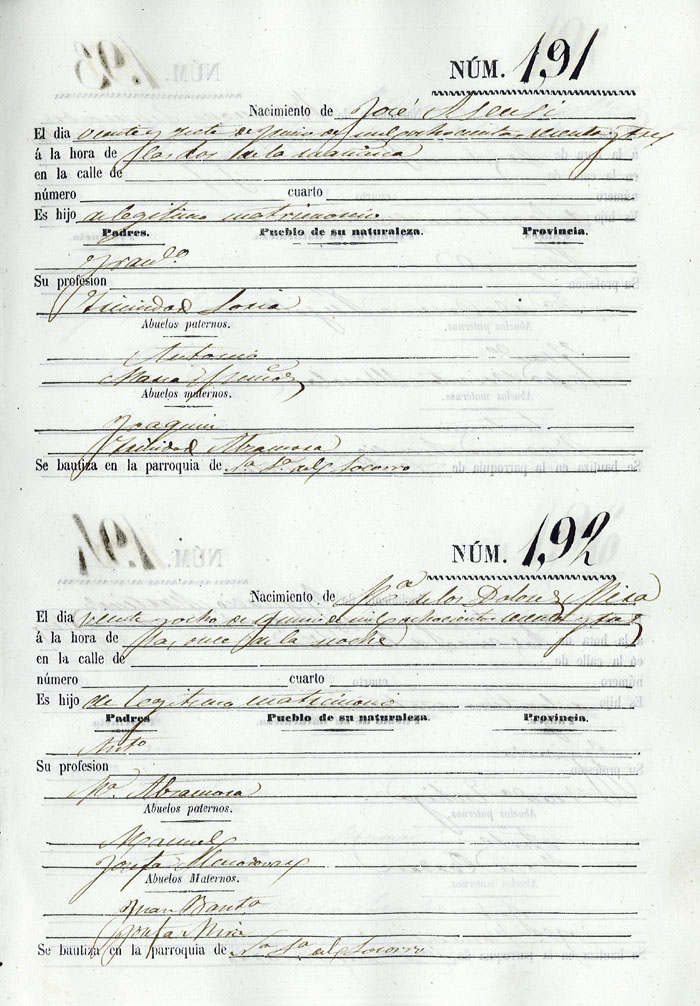 NÚM. 191
Nacimiento de José Asensi
El dia veinte y siete de Junio de mil ochocientos sesenta y tres
á la hora de las dos de la mañana
en la calle de
número cuarto
Es hijo de legitimo matrimonio
Padres. Pueblo de su naturaleza. Provincia.
Fran.co
Su profesion
Trinidad Soria
Abuelos paternos.
Antonio
Maria
Abuelos maternos.
Joaquin
Trinidad Abramosa
Se bautiza en la parroquia de N.a S.a del Socorro
NÚM. 192
Nacimiento de M.a de los Dolores Mira
El dia veinte y ocho de Junio de mil ochocientos sesenta y tres
á la hora de las once de la noche
en la calle de
número cuarto
Es hijo de legitimo matrimonio
Padres Pueblo de su naturaleza. Provincia.
Ant.o
Su profesion
M.a Abramosa
Abuelos paternos.
Manuel
Josefa
Abuelos Maternos.
Juan Bauta
Josefa Mira
Se bautiza en la parroquia de N.a S.a del Socorro